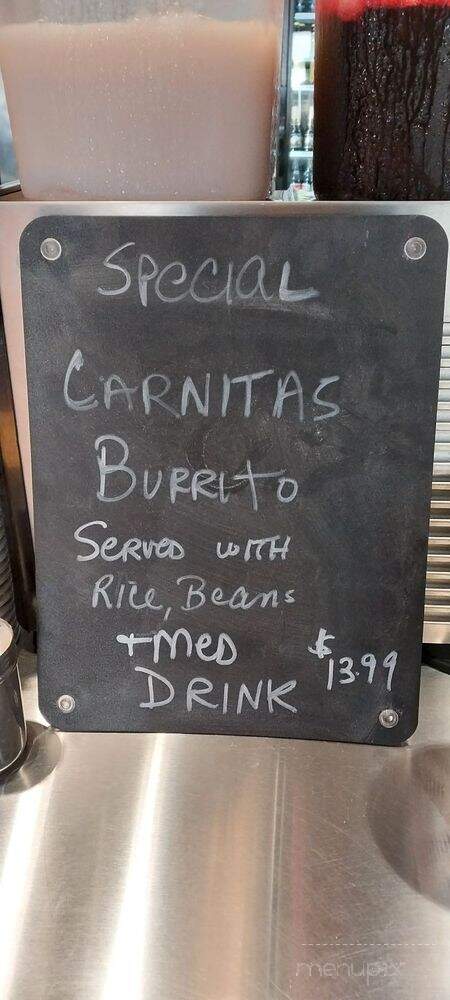 SPECIAL
CARNITAS
BURRITO
SERVED WITH
Rice, Beans
+MED
$13.99
DRINK
menupix